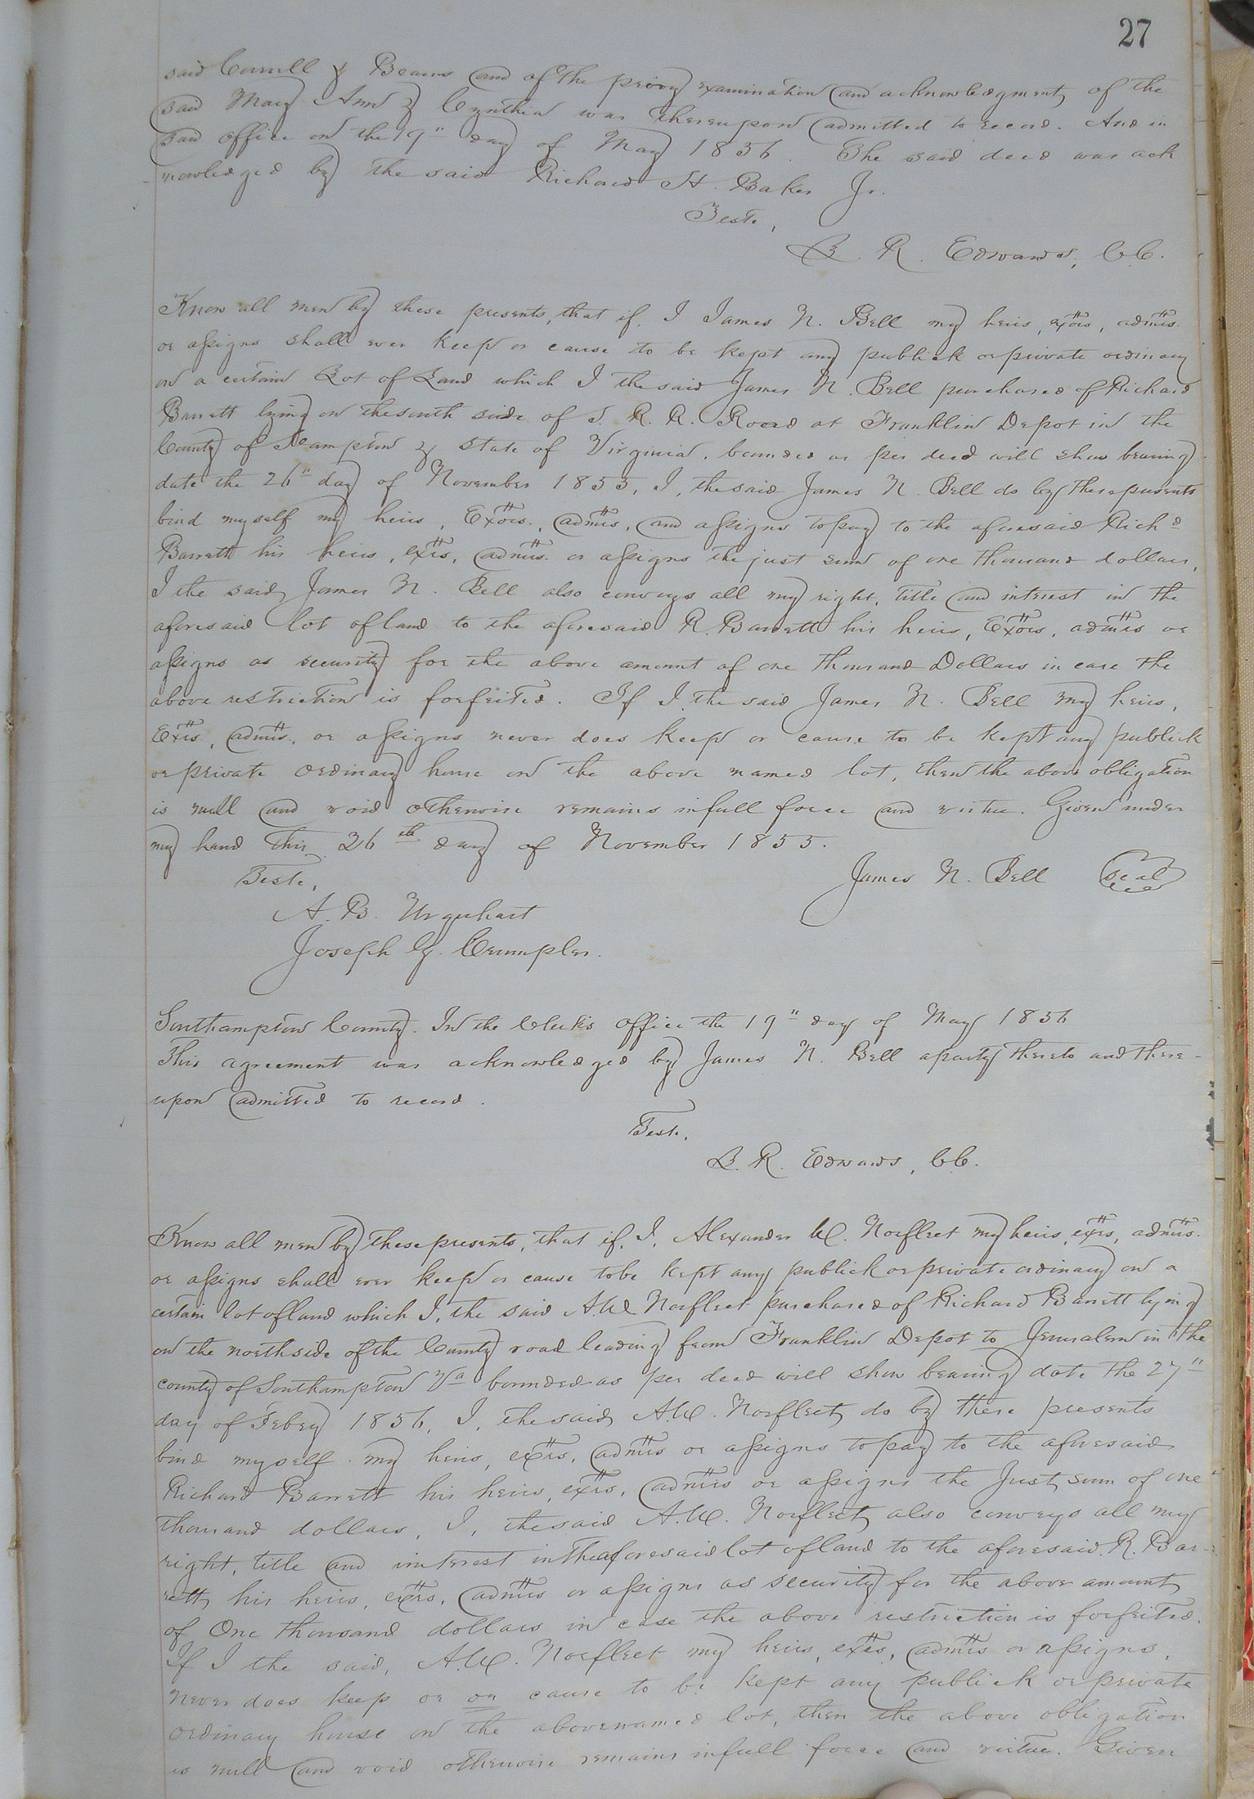 27
said Correll & Beams and of the privy examination and acknowledgment of the
said Mary Ann & Cynthia was thereupon admitted to record. And in
said office on the 19" day of May 1856. The said deed was ack
nowledged by the said Richard H. Baker Jr.
Teste,
L. R. Edwards, C.C.
Know all men by these presents, that if, I James N. Bell my heirs, exors, admrs.
or assigns shall ever keep or cause to be kept any publick or private ordinary
on a certain Lot of Land which I the said James N. Bell purchased of Richard
Barrett lying on the south side of S. R. R. Road at Franklin Depot in the
County of S.hampton & State of Virginia, bounded as per deed will show bearing
date the 26" day of November 1855, I, the said James N. Bell do by these presents
bind myself my heirs, Exors., admrs, and assigns to pay to the aforesaid Richd
Barrett his heirs, exrs, admrs. or assigns the just sum of one thousand dollars,
I the said, James N. Bell also conveys all my right, title and interest in the
aforesaid lot of land to the aforesaid R. Barrett his heirs, Exors, admrs or
assigns as security for the above amount of one thousand Dollars in case the
above restriction is forfeited. If I, the said James N. Bell my heirs,
Exrs, admrs, or assigns never does keep or cause to be kept any publick
or private ordinary house on the above named lot, then the above obligation
is null and void otherwise remains in full force and virtue. Given under
my hand this 26th day of November 1855.
Teste,
James N. Bell (Seal)
A. B. Urquhart
Joseph G. Crumpler.
Southampton County. In the Clerk's office the 19" day of May 1856
This agreement was acknowledged by James N. Bell a party thereto and there-
upon admitted to record.
Teste,
L. R. Edwards, C.C.
Know all men by these presents, that if, I, Alexander W. Norfleet my heirs, exrs, admrs.
or assigns shall ever keep or cause to be kept any publick or private ordinary on a
certain lot of land which I, the said A.W. Norfleet purchased of Richard Barrett lying
on the north side of the County road leading from Franklin Depot to Jerusalem in the
county of Southampton Va bounded as per deed will show bearing date the 27"
day of Feby 1856, I, the said, A.W. Norfleet, do by these presents
bind myself my heirs, exrs, admrs or assigns to pay to the aforesaid
Richard Barrett his heirs, exrs, admrs or assigns the just sum of one
thousand dollars, I, the said A.W. Norfleet, also conveys all my
right, title and interest in the aforesaid lot of land to the aforesaid R. Bar-
rett, his heirs, exrs, admrs or assigns as security for the above amount
of One thousand dollars in case the above restriction is forfeited.
If I the said, A.W. Norfleet my heirs, exrs, admrs or assigns,
never does keep or or cause to be kept any publick or private
ordinary house on the above named lot, then the above obligation
is null and void otherwise remains in full force and virtue. Given